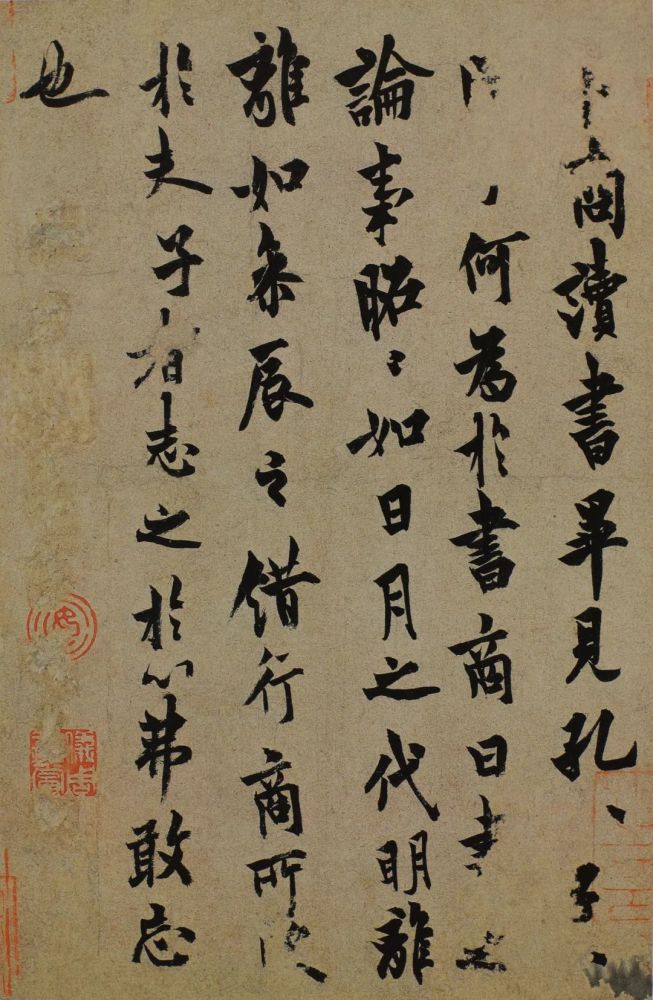 卜商讀書畢見孔、子、
何為於書商曰書之
論事昭〻如日月之代明離
離如參辰之錯行商所受
於夫子者志之於心弗敢忘
也